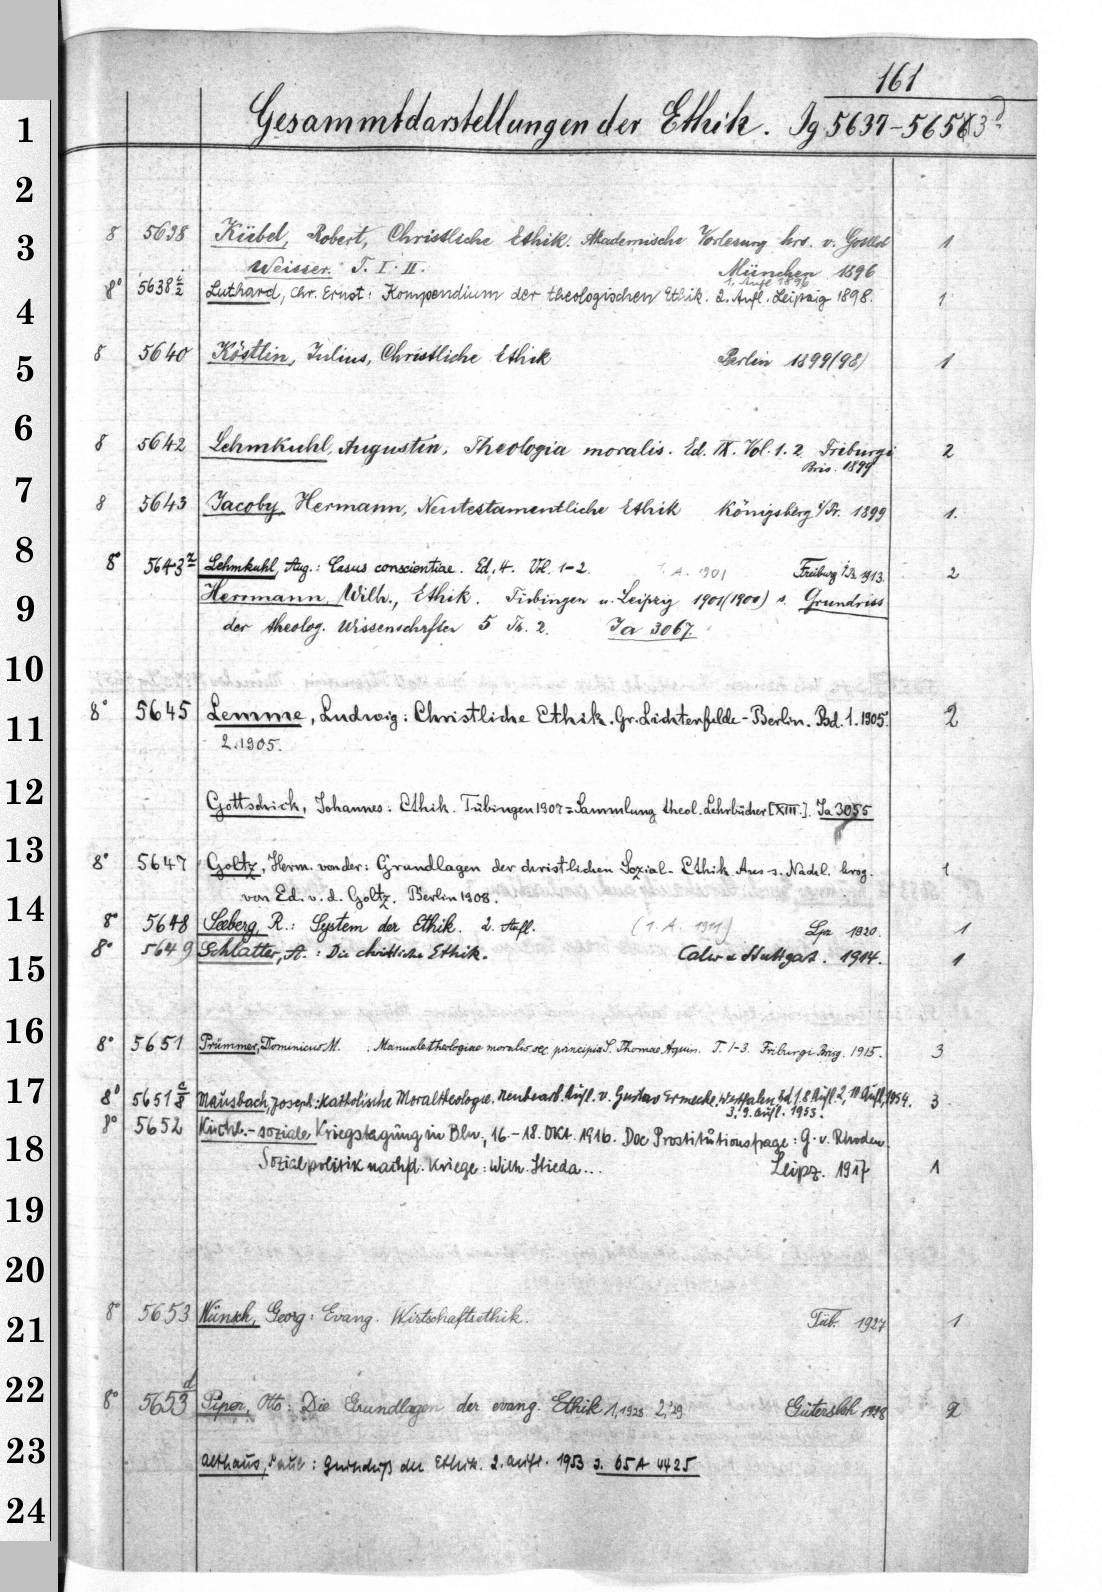 161
1 Gesammtdarstellungen der Ethik. Ig 5637-5653d
2
3 8 5638 Kübel, Robert, Christliche Ethik. Akademische Vorlesung hrs. v. Gottlob 1
Weisser. T. I. II. München 1896
1. Aufl 1896
8° 5638 c/2 Luthard, Chr. Ernst: Kompendium der theologischen Ethik. 2. Aufl. Leipzig 1898. 1
4
5 8 5640 Köstlin, Julius, Christliche Ethik Berlin 1899(98) 1
6 8 5642 Lehmkuhl, Augustin, Theologia moralis. Ed. IX. Vol. 1. 2 Friburgi 2
Bris. 1899
7 8 5643 Jacoby, Hermann, Neutestamentliche Ethik Königsberg i/Pr. 1899 1.
8 8° 5643 z Lehmkuhl, Aug.: Casus conscientiae. Ed. 4. Vol. 1-2. 1. A. 1901 Freiburg i/B. 1913. 2
9 Herrmann, Wilh., Ethik. Tübingen u. Leipzig 1901(1900) s. Grundriss
der theolog. Wissenschaften 5 Th. 2. Ia 3067.
10
11 8° 5645 Lemme, Ludwig: Christliche Ethik. Gr. Lichterfelde-Berlin. Bd. 1. 1905. 2
2. 1905.
12 Gottschick, Johannes: Ethik. Tübingen 1907 = Sammlung theol. Lehrbücher [XIII.]. Ia 3055
13 8° 5647 Goltz, Herm. von der: Grundlagen der christlichen Sozial-Ethik. Aus s. Nachl. hrsg. 1
von Ed. v. d. Goltz. Berlin 1908.
14 8° 5648 Seeberg, R.: System der Ethik. 2. Aufl. (1. A. 1911) Lpz 1920. 1
15 8° 5649 Schlatter, A.: Die christliche Ethik. Calw u Stuttgart. 1914. 1
16 8° 5651 Prümmer, Dominicus M. Manuale theologiae moralis sec. principia S. Thomae Aquin. T. 1-3. Friburgi Brisg. 1915. 3
17 8° 5651 c/8 Mausbach, Joseph: Katholische Moraltheologie. Neubearb. Aufl. v. Gustav Ermecke. Westfalen Bd. 1. 8 Aufl. 2, 10 Aufl. 1954. 3
3, 9. Aufl. 1953.
8° 5652 Kirchl.-soziale Kriegstagung in Bln., 16.-18. Okt. 1916. Die Prostitutionsfrage: G. v. Rhoden.
18 Sozialpolitik nach d. Kriege: Wilh. Stieda... Leipz. 1917 1
19
20
21 8° 5653 Wünsch, Georg: Evang. Wirtschaftsethik. Tüb. 1927 1
22 8° 5653 d Piper, Otto: Die Grundlagen der evang. Ethik 1, 1928 2, '29 Gütersloh 1928 2
23 Althaus, Paul: Grundriß der Ethik. 2. Aufl. 1953 s. 65 A 4425
24